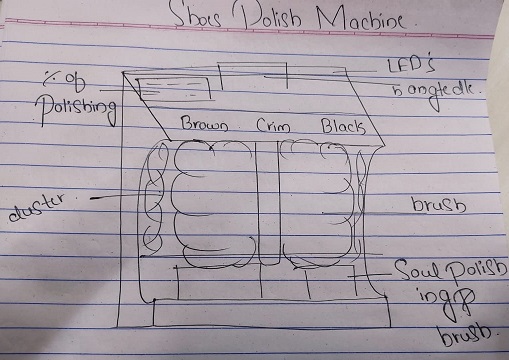 Shoes Polish Machine.
LED's
% of
Polishing
Brown Crim Black
duster
brush
Soul Polish
ing
brush.